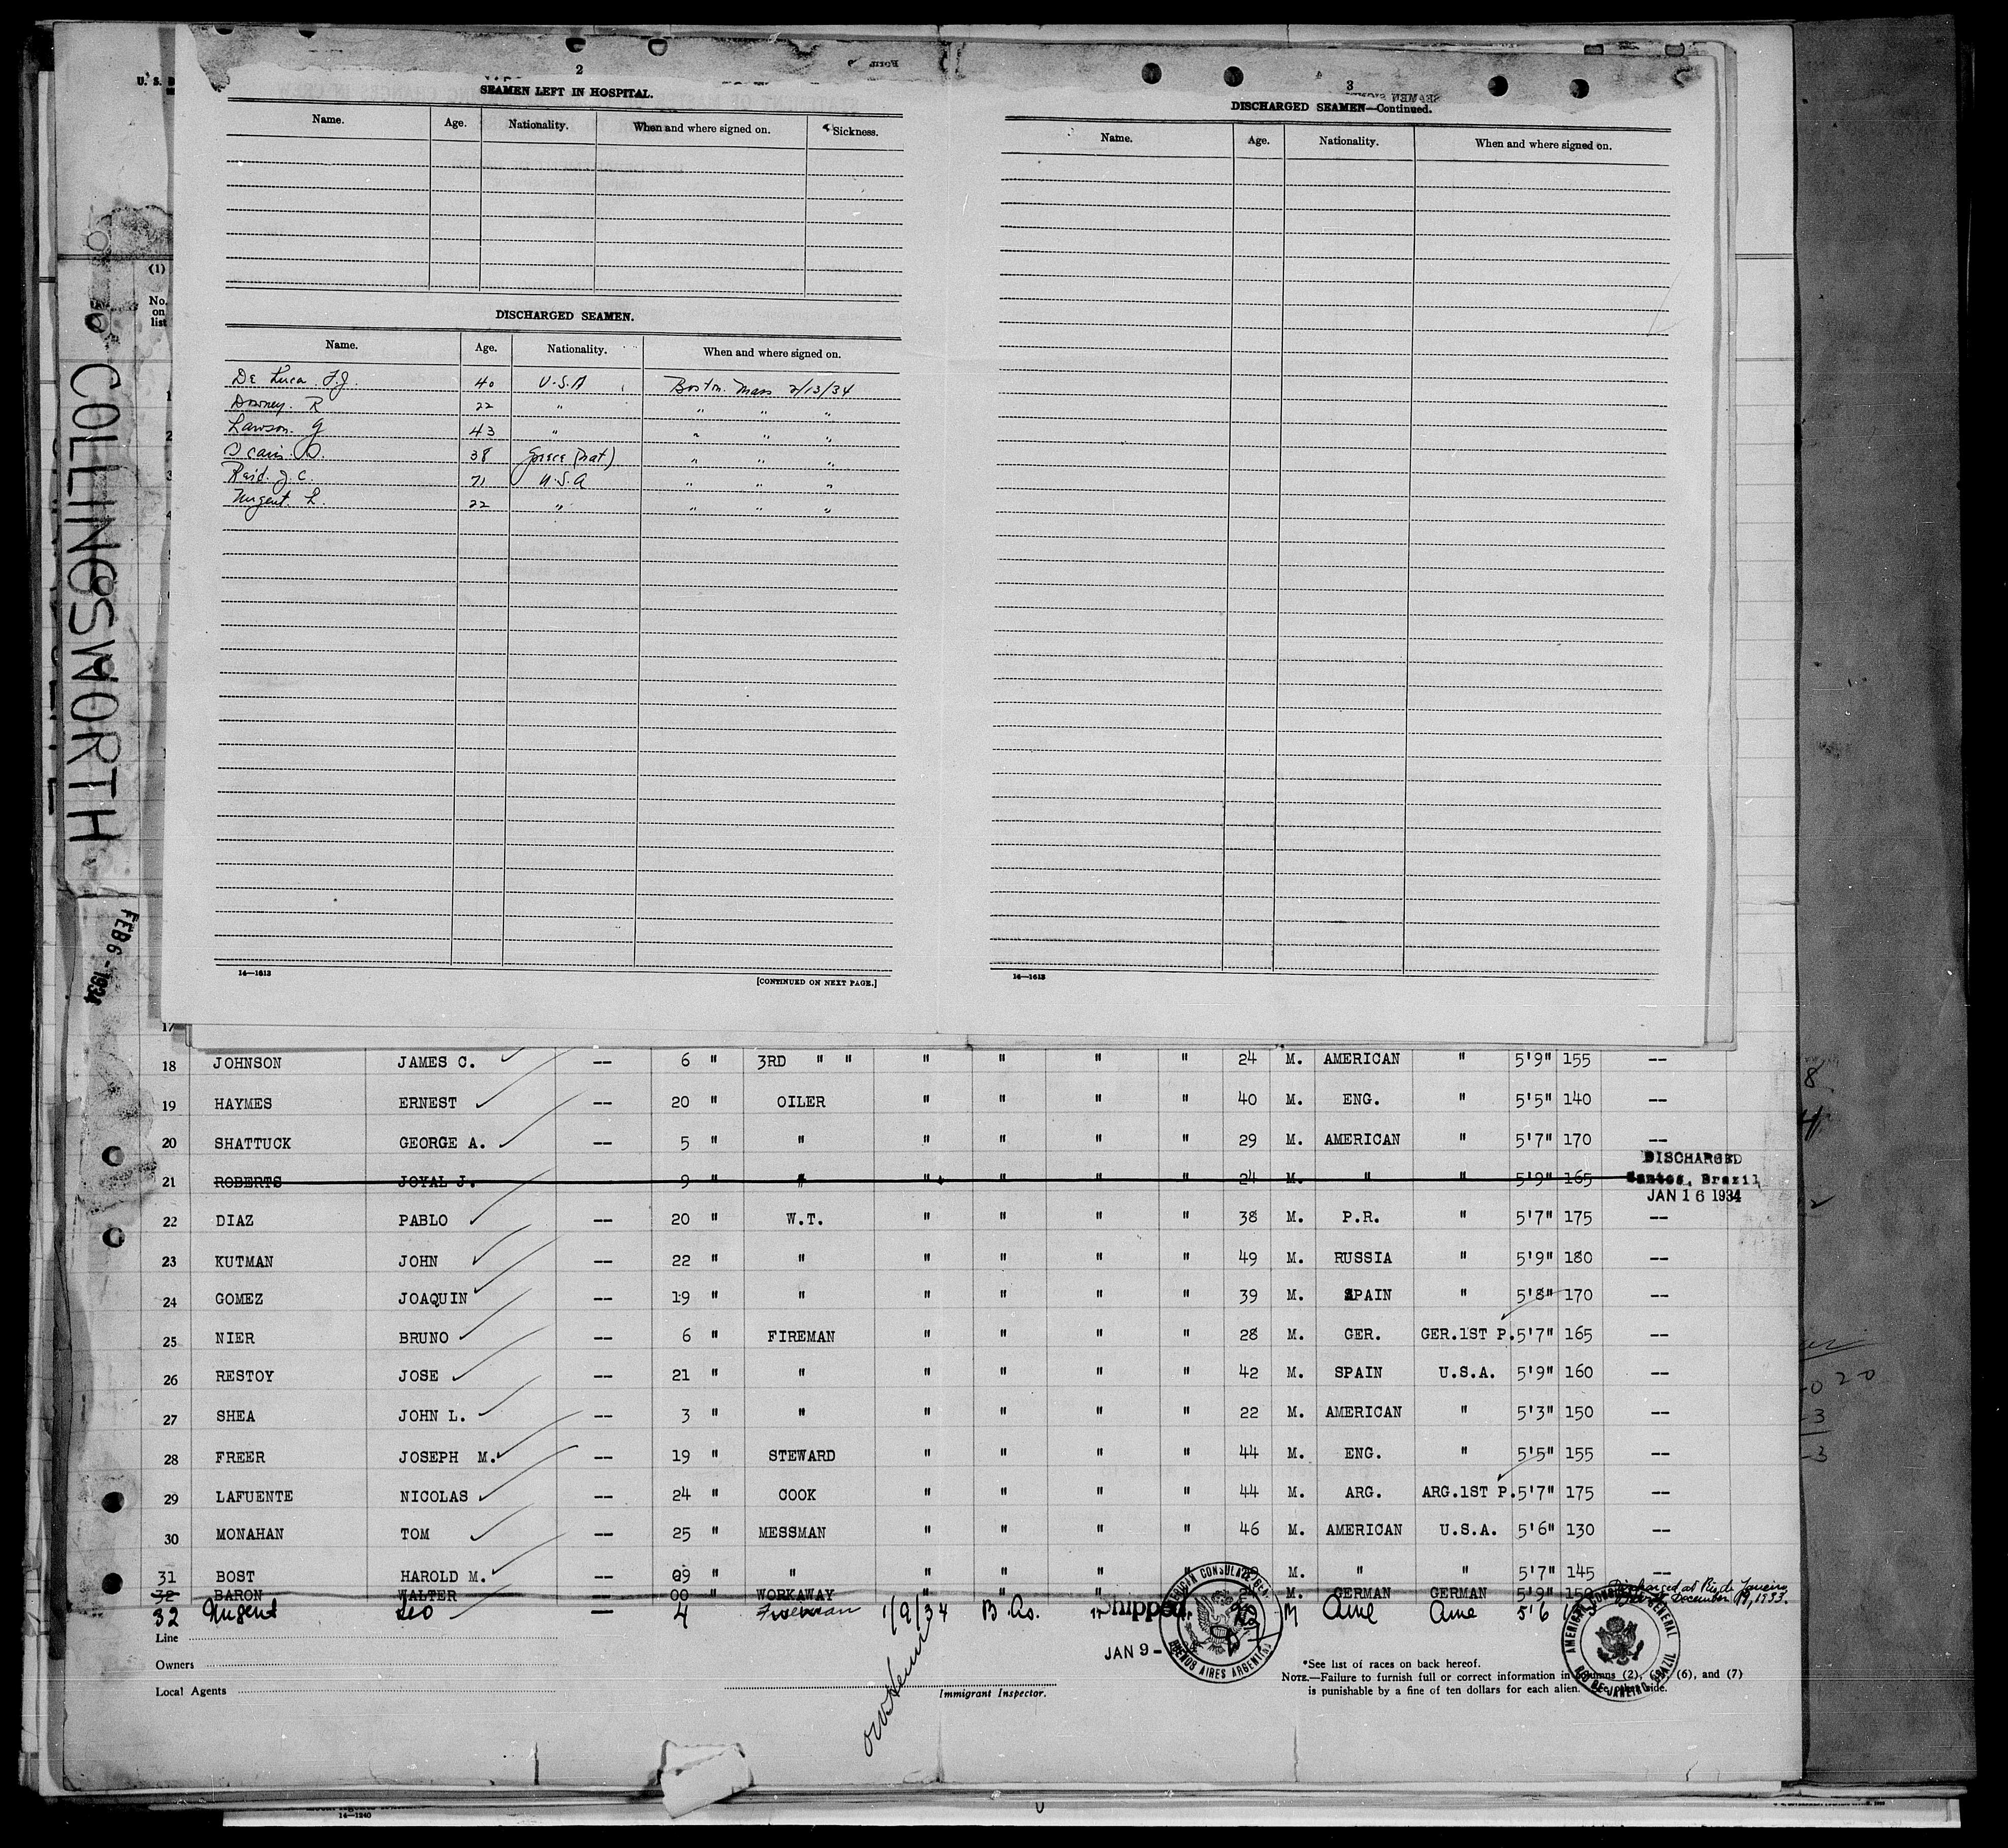 U. S. D
(1)
No.
on
list
COLLINGSWORTH
FEB 6 - 1934
2
SEAMEN LEFT IN HOSPITAL.
Name. Age. Nationality. When and where signed on. Sickness.
DISCHARGED SEAMEN.
Name. Age. Nationality. When and where signed on.
De Luca. F.J. 40 U.S.A Boston. Mass 2/13/34
Downey. R 22 " " " "
Lawson. G 43 " " " "
38 Greece (nat) " " "
Reid. J.C. 71 U.S.A " " "
Nugent. L. 22 " " " "
14—1613
[CONTINUED ON NEXT PAGE.]
3
DISCHARGED SEAMEN—Continued.
Name. Age. Nationality. When and where signed on.
14—1613
17
18 JOHNSON JAMES C. -- 6 " 3RD " " " " " " 24 M. AMERICAN " 5'9" 155 --
19 HAYMES ERNEST -- 20 " OILER " " " " 40 M. ENG. " 5'5" 140 --
20 SHATTUCK GEORGE A. -- 5 " " " " " " 29 M. AMERICAN " 5'7" 170 --
21 ROBERTS JOYAL J. 9 " " " " " " 24 M. " " 5'9" 165 DISCHARGED
Santos, Brazil
JAN 16 1934
22 DIAZ PABLO -- 20 " W.T. " " " " 38 M. P.R. " 5'7" 175 --
23 KUTMAN JOHN -- 22 " " " " " " 49 M. RUSSIA " 5'9" 180 --
24 GOMEZ JOAQUIN -- 19 " " " " " " 39 M. SPAIN " 5'8" 170 --
25 NIER BRUNO -- 6 " FIREMAN " " " " 28 M. GER. GER.1ST P. 5'7" 165 --
26 RESTOY JOSE -- 21 " " " " " " 42 M. SPAIN U.S.A. 5'9" 160 --
27 SHEA JOHN L. -- 3 " " " " " " 22 M. AMERICAN " 5'3" 150 --
28 FREER JOSEPH M. -- 19 " STEWARD " " " " 44 M. ENG. " 5'5" 155 --
29 LAFUENTE NICOLAS -- 24 " COOK " " " " 44 M. ARG. ARG.1ST P. 5'7" 175 --
30 MONAHAN TOM -- 25 " MESSMAN " " " " 46 M. AMERICAN U.S.A. 5'6" 130 --
31 BOST HAROLD M. -- 09 " " " " " " M. " " 5'7" 145 --
32 BARON WALTER -- 00 " WORKAWAY " " " M. GERMAN GERMAN 5'9" 150 Discharged at Rio de Janeiro
Brazil December 19, 1933.
32 Nugent Leo — 4 Fireman 1/9/34 B.As. " Shipped. 22 M Ame Ame 5'6
JAN 9 -
AMERICAN CONSULATE GEN. BUENOS AIRES ARGENTINA
AMERICAN CONSULATE GENERAL RIO DE JANEIRO, BRAZIL
Line
Owners
Local Agents
Immigrant Inspector.
*See list of races on back hereof.
NOTE.—Failure to furnish full or correct information in columns (2), (6), and (7)
is punishable by a fine of ten dollars for each alien. See other side.
14—1240